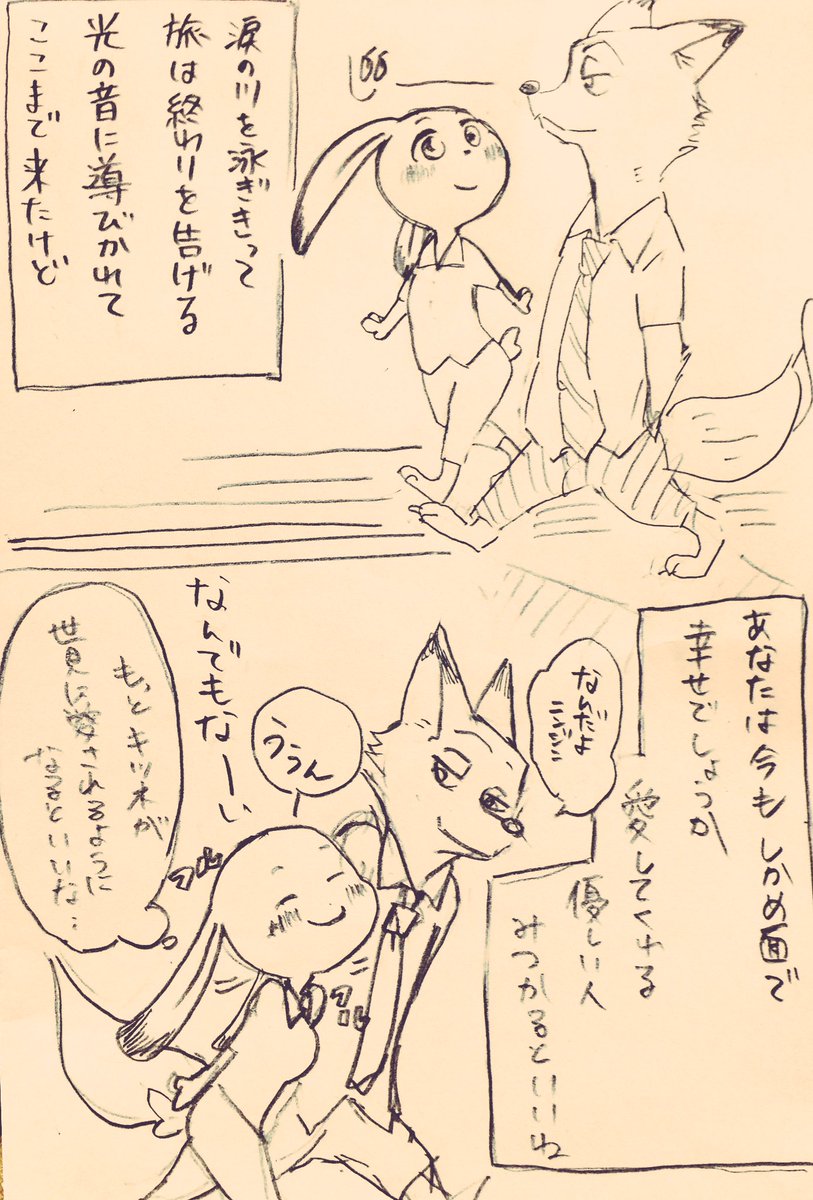 涙の川を泳ぎきって
旅は終わりを告げる
光の音に導びかれて
ここまで来たけど
あなたは今もしかめ面で
幸せでしょうか
愛してくれる
優しい人
みつかるといいね
なんだよ
ニンジン
ううん
なんでもなーい
もっとキツネが
世見に許されるように
なるといいな…